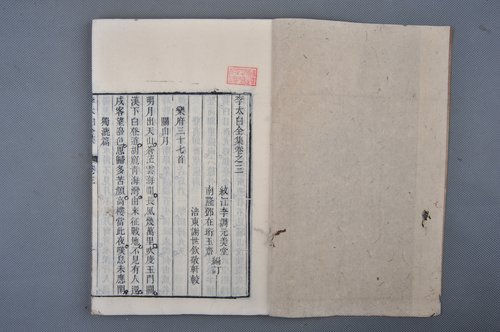 李太白全集卷之三
綿江李調元美堂
南羅鄧在珩玉齋 編訂
涪東謝世欽敬軒較
樂府三十七首
關山月
明月出天山蒼茫雲海間長風幾萬里吹度玉門關
漢下白登道胡窺青海灣由來征戰地不見有人還
戍客望邊色思歸多苦顏高樓當此夜嘆息未應閒
獨漉篇
李太白全集